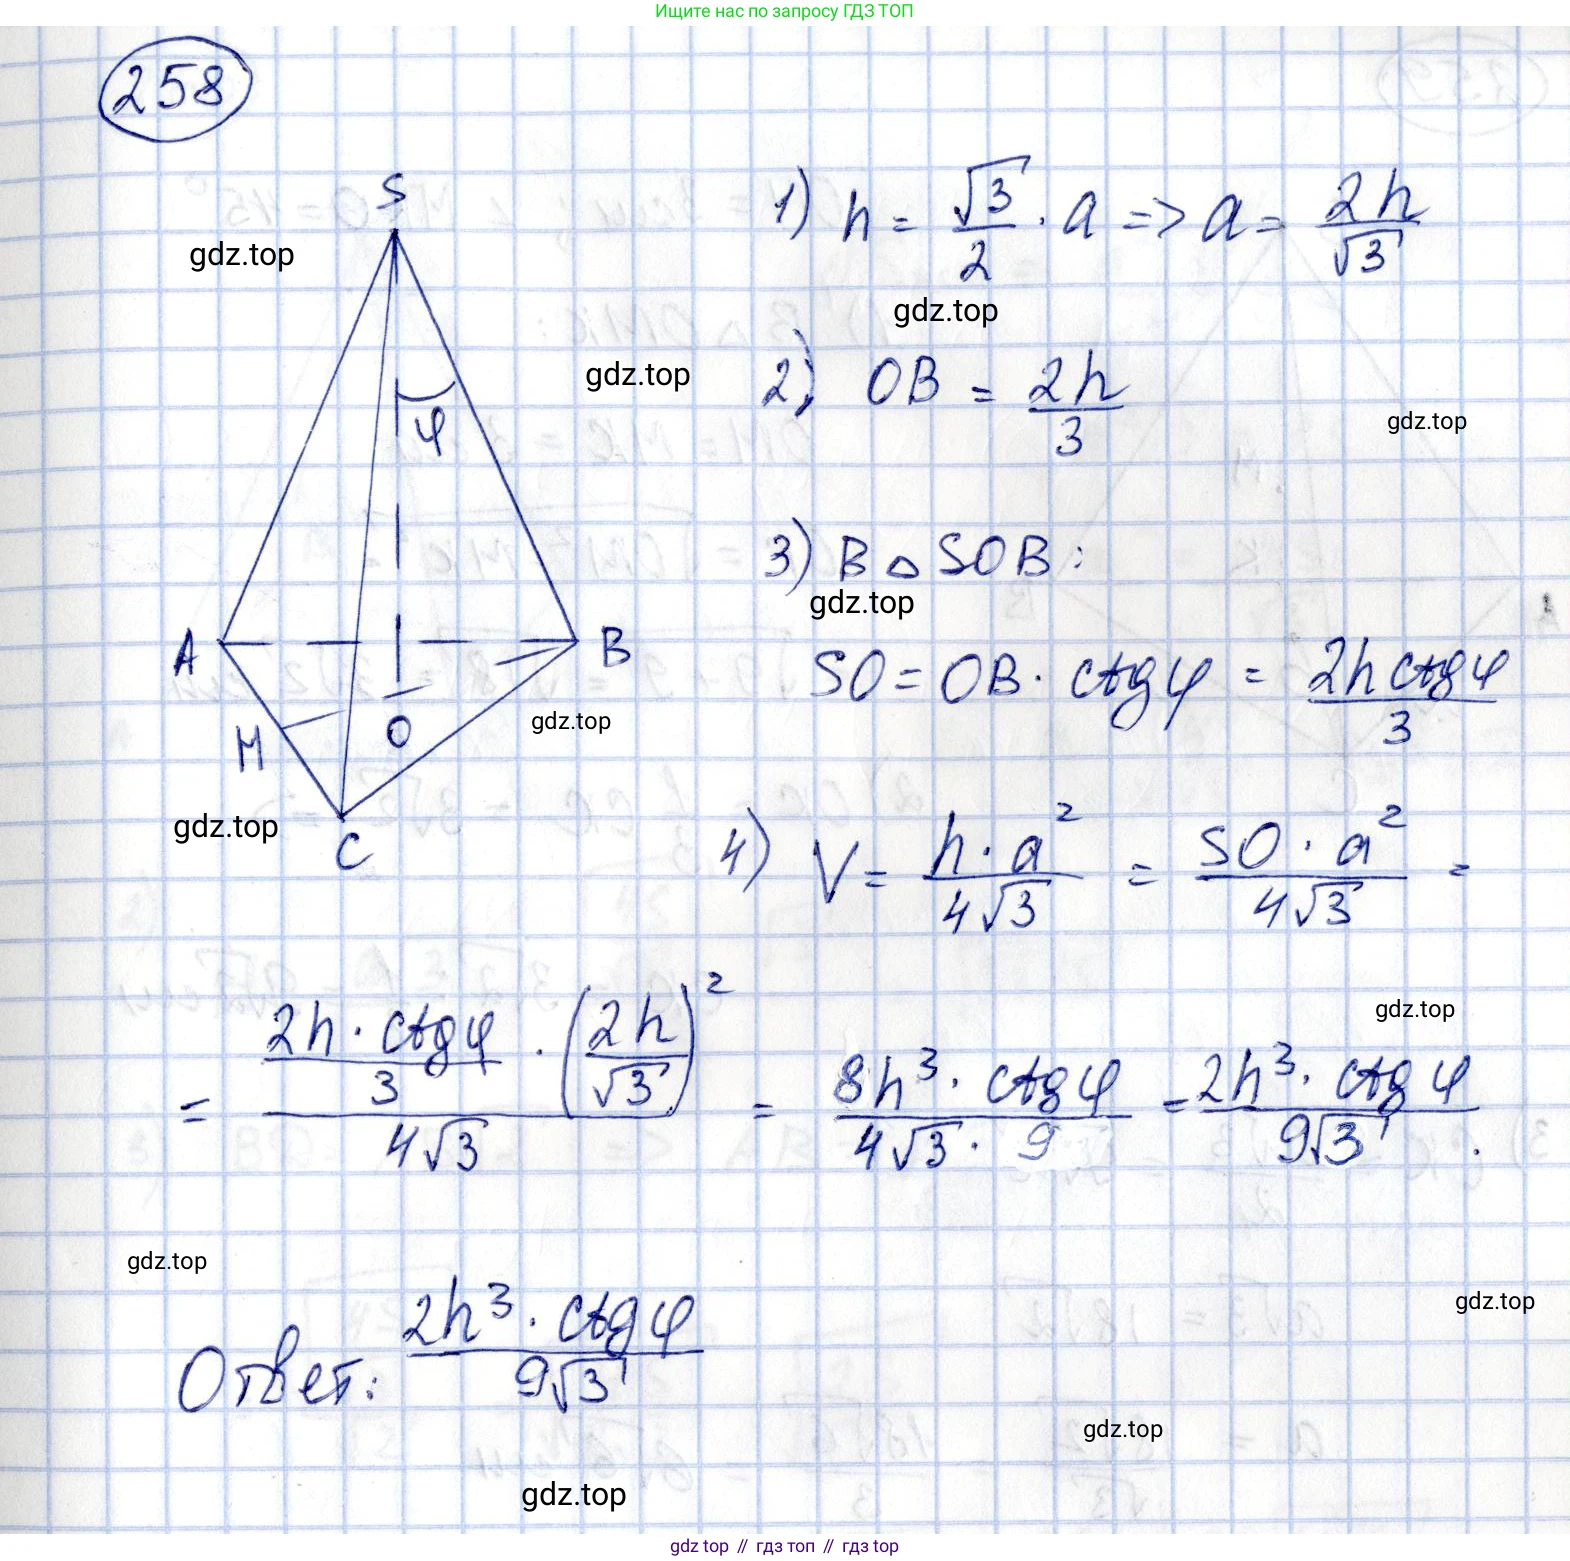 Ищите нас по запросу ГДЗ ТОП
258
S
gdz.top
1) h = √3/2 · a => a = 2h/√3
gdz.top
gdz.top
2) OB = 2h/3
gdz.top
φ
3) В △ SOB:
gdz.top
A
B
SO = OB · ctg φ = 2h ctg φ/3
M
O
gdz.top
gdz.top
C
4) V = h · a²/4√3 = SO · a²/4√3 =
gdz.top
= 2h · ctg φ/3 · (2h/√3)²/4√3 = 8h³ · ctg φ/4√3 · 9 = 2h³ · ctg φ/9√3.
gdz.top
gdz.top
Ответ: 2h³ · ctg φ/9√3
gdz.top
gdz.top
gdz top // гдз топ // гдз top